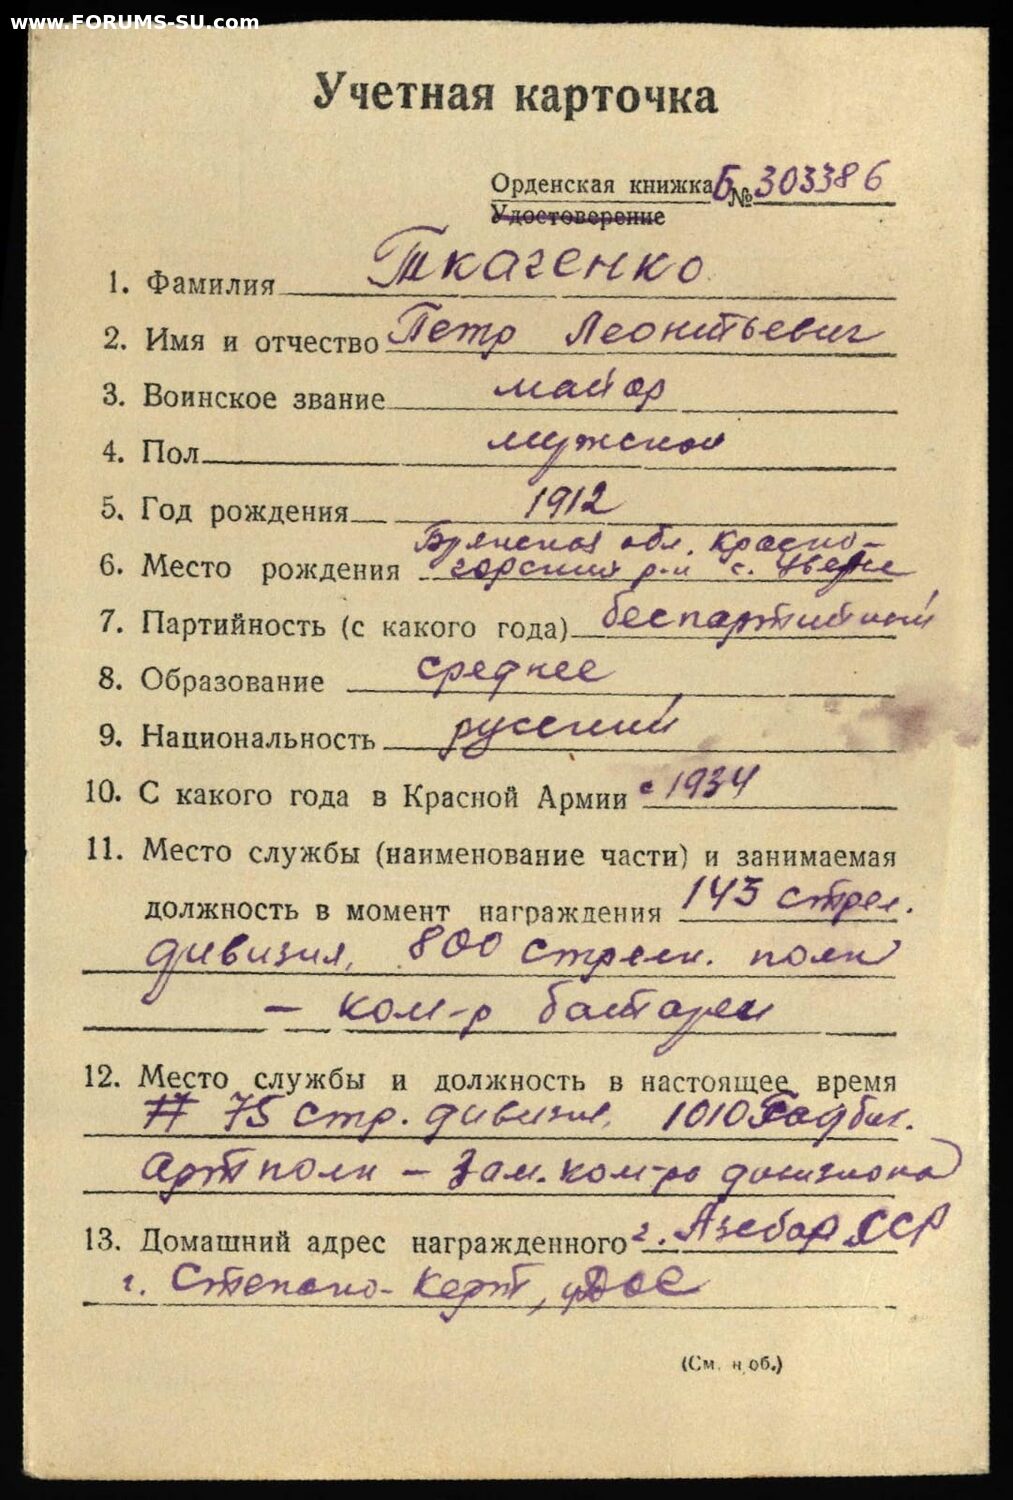 www.FORUMS-SU.com
Учетная карточка
Орденская книжка Б № 303386
Удостоверение
1. Фамилия Ткаченко
2. Имя и отчество Петр Леонтьевич
3. Воинское звание майор
4. Пол мужской
5. Год рождения 1912
Брянская обл. Красно-
6. Место рождения горский р-н с.
7. Партийность (с какого года) беспартийный
8. Образование среднее
9. Национальность русский
10. С какого года в Красной Армии с 1934
11. Место службы (наименование части) и занимаемая
должность в момент награждения 143 стрел.
дивизия, 800 стрелк. полк
– ком-р батареи
12. Место службы и должность в настоящее время
75 стр. дивизия, 1010
артполк – зам. ком-ра дивизиона
13. Домашний адрес награжденного г. Азербар ССР
г. Степано-Керт, ДОС
(См. н об.)